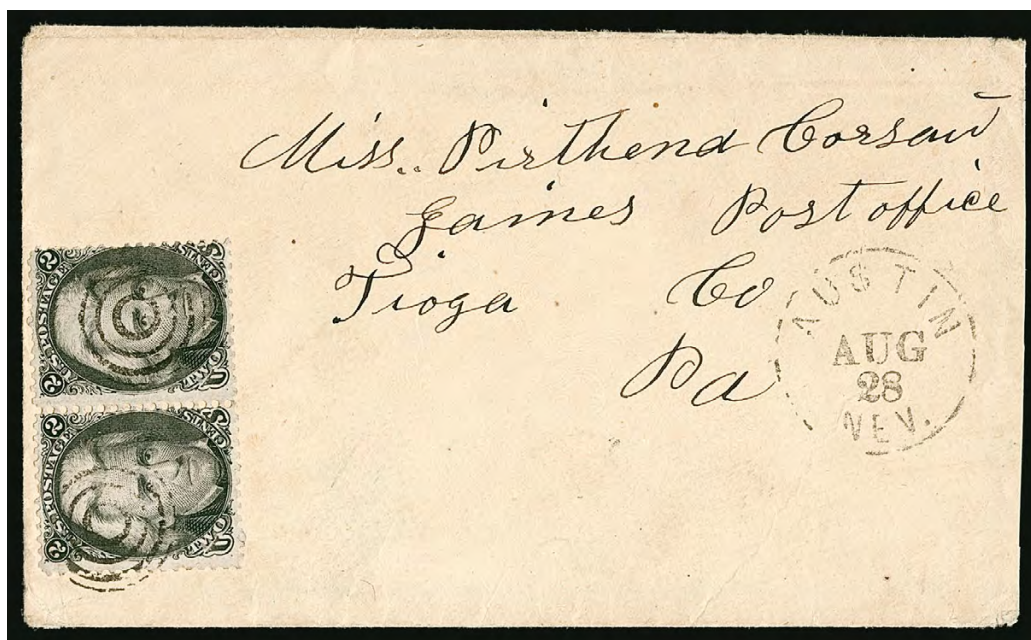 Miss. Pirthend Corsaw
Gaines Post office
Tioga Co
Pa
AUSTIN
AUG
28
NEV.
U.S. POSTAGE
2 2
TWO CENTS
U.S. POSTAGE
2 2
TWO CENTS